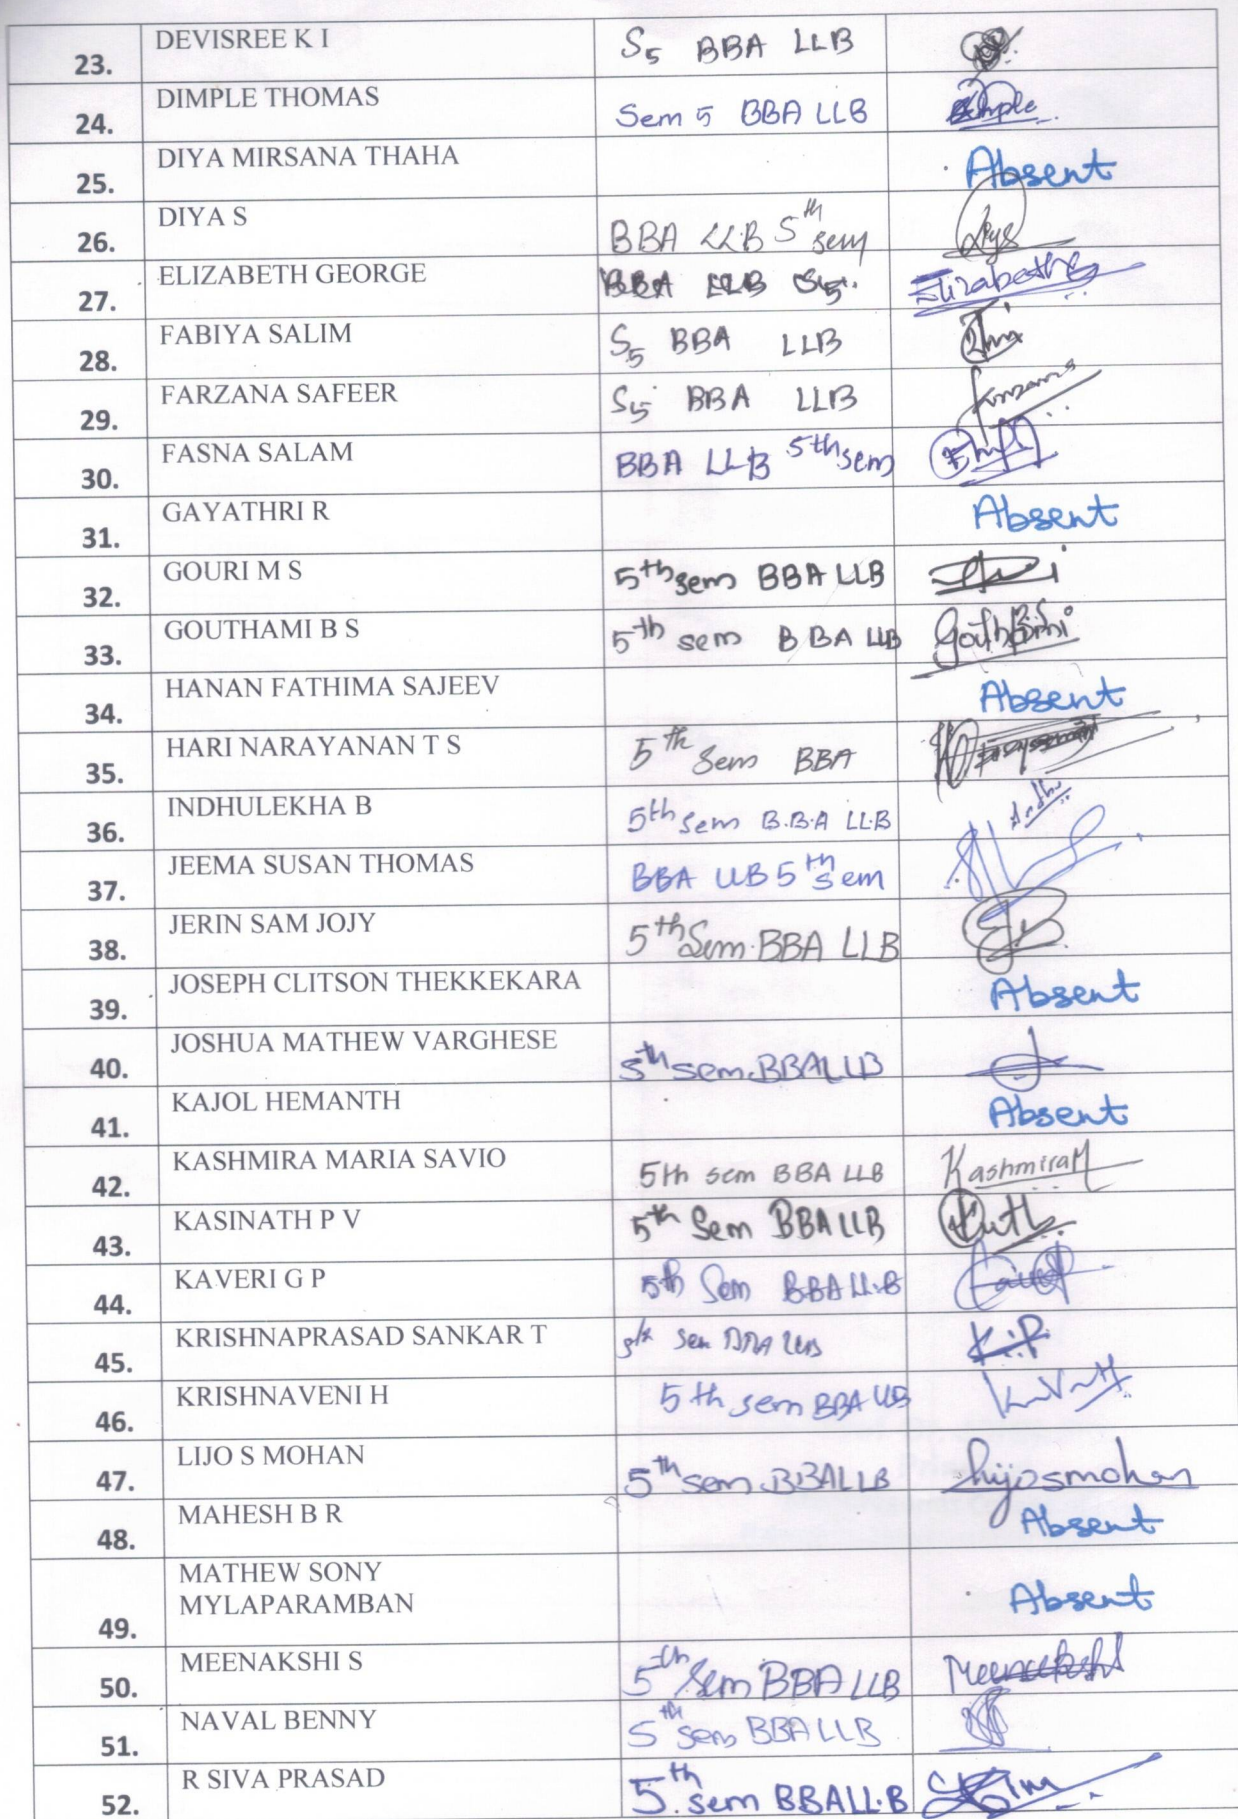 23. DEVISREE K I S5 BBA LLB
24. DIMPLE THOMAS Sem 5 BBA LLB Dimple
25. DIYA MIRSANA THAHA Absent
26. DIYA S BBA LLB 5th sem Diya
27. ELIZABETH GEORGE BBA LLB S5. Elizabeth
28. FABIYA SALIM S5 BBA LLB
29. FARZANA SAFEER S5 BBA LLB Farzana
30. FASNA SALAM BBA LLB 5th sem
31. GAYATHRI R Absent
32. GOURI M S 5th sem BBA LLB
33. GOUTHAMI B S 5th sem BBA LLB Gouthami
34. HANAN FATHIMA SAJEEV Absent
35. HARI NARAYANAN T S 5th Sem BBA
36. INDHULEKHA B 5th sem B.B.A LL.B Indhu
37. JEEMA SUSAN THOMAS BBA LLB 5th Sem
38. JERIN SAM JOJY 5th Sem. BBA LLB
39. JOSEPH CLITSON THEKKEKARA Absent
40. JOSHUA MATHEW VARGHESE 5th sem. BBA LLB
41. KAJOL HEMANTH Absent
42. KASHMIRA MARIA SAVIO 5th sem BBA LLB Kashmira M
43. KASINATH P V 5th Sem BBA LLB
44. KAVERI G P 5th Sem BBA LL.B
45. KRISHNAPRASAD SANKAR T 5th sem BBA LLB K.P
46. KRISHNAVENI H 5th sem BBA LLB
47. LIJO S MOHAN 5th sem BBA LLB Lijosmohan
48. MAHESH B R Absent
49. MATHEW SONY
MYLAPARAMBAN Absent
50. MEENAKSHI S 5th Sem BBA LLB Meenakshi
51. NAVAL BENNY 5th sem BBA LLB
52. R SIVA PRASAD 5.th sem BBA LL.B